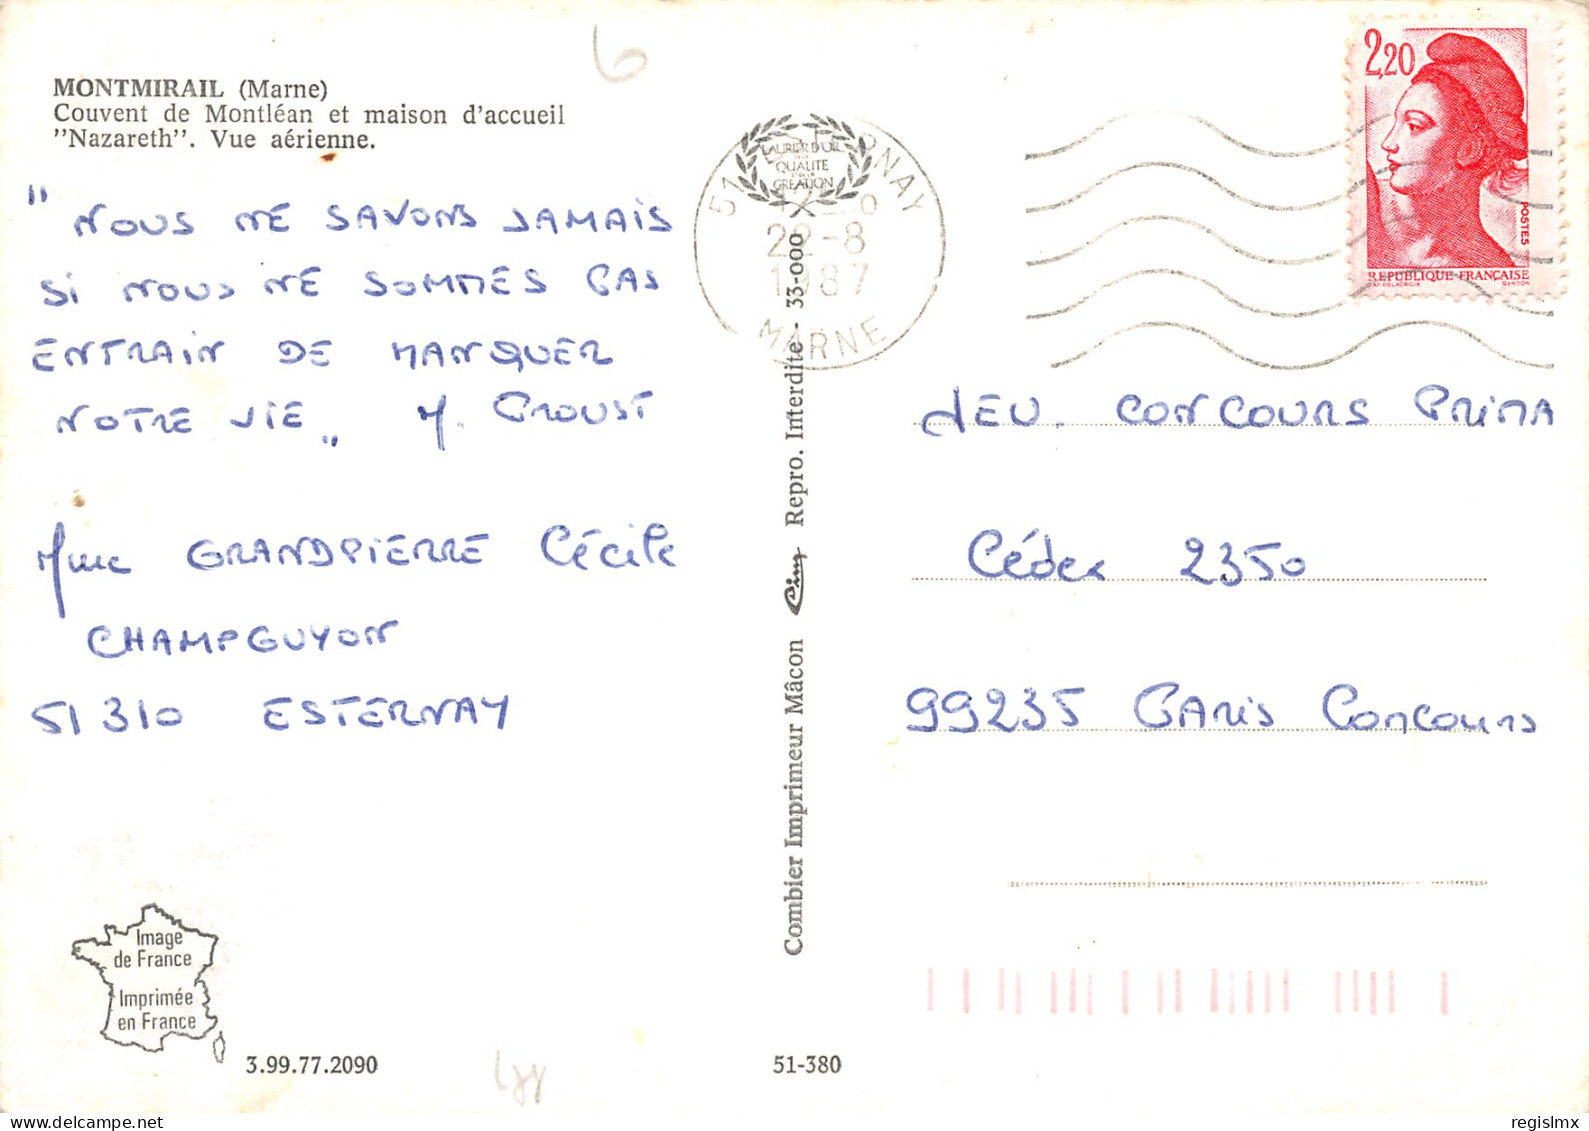 MONTMIRAIL (Marne)
Couvent de Montléan et maison d'accueil
"Nazareth". Vue aérienne.
6
" NOUS NE SAVONS JAMAIS
Si NOUS NE SOMMES PAS
ENTRAIN DE MANQUER
NOTRE VIE „ M. PROUST
Mme GRANDPIERRE Cécile
CHAMPGUYON
51310 ESTERNAY
Image
de France
Imprimée
en France
3.99.77.2090
Combier Imprimeur Mâcon Cim Repro. Interdite - 33-000
LAURIER D'OR
QUALITE
CREATION
51 EPERNAY
22-8
1987
MARNE
2,20
POSTES
REPUBLIQUE FRANÇAISE
D'AP. DELACROIX GANDON
JEU. CONCOURS PRIMA
Cédex 2350
99235 PARIS Concours
51-380
regislmx